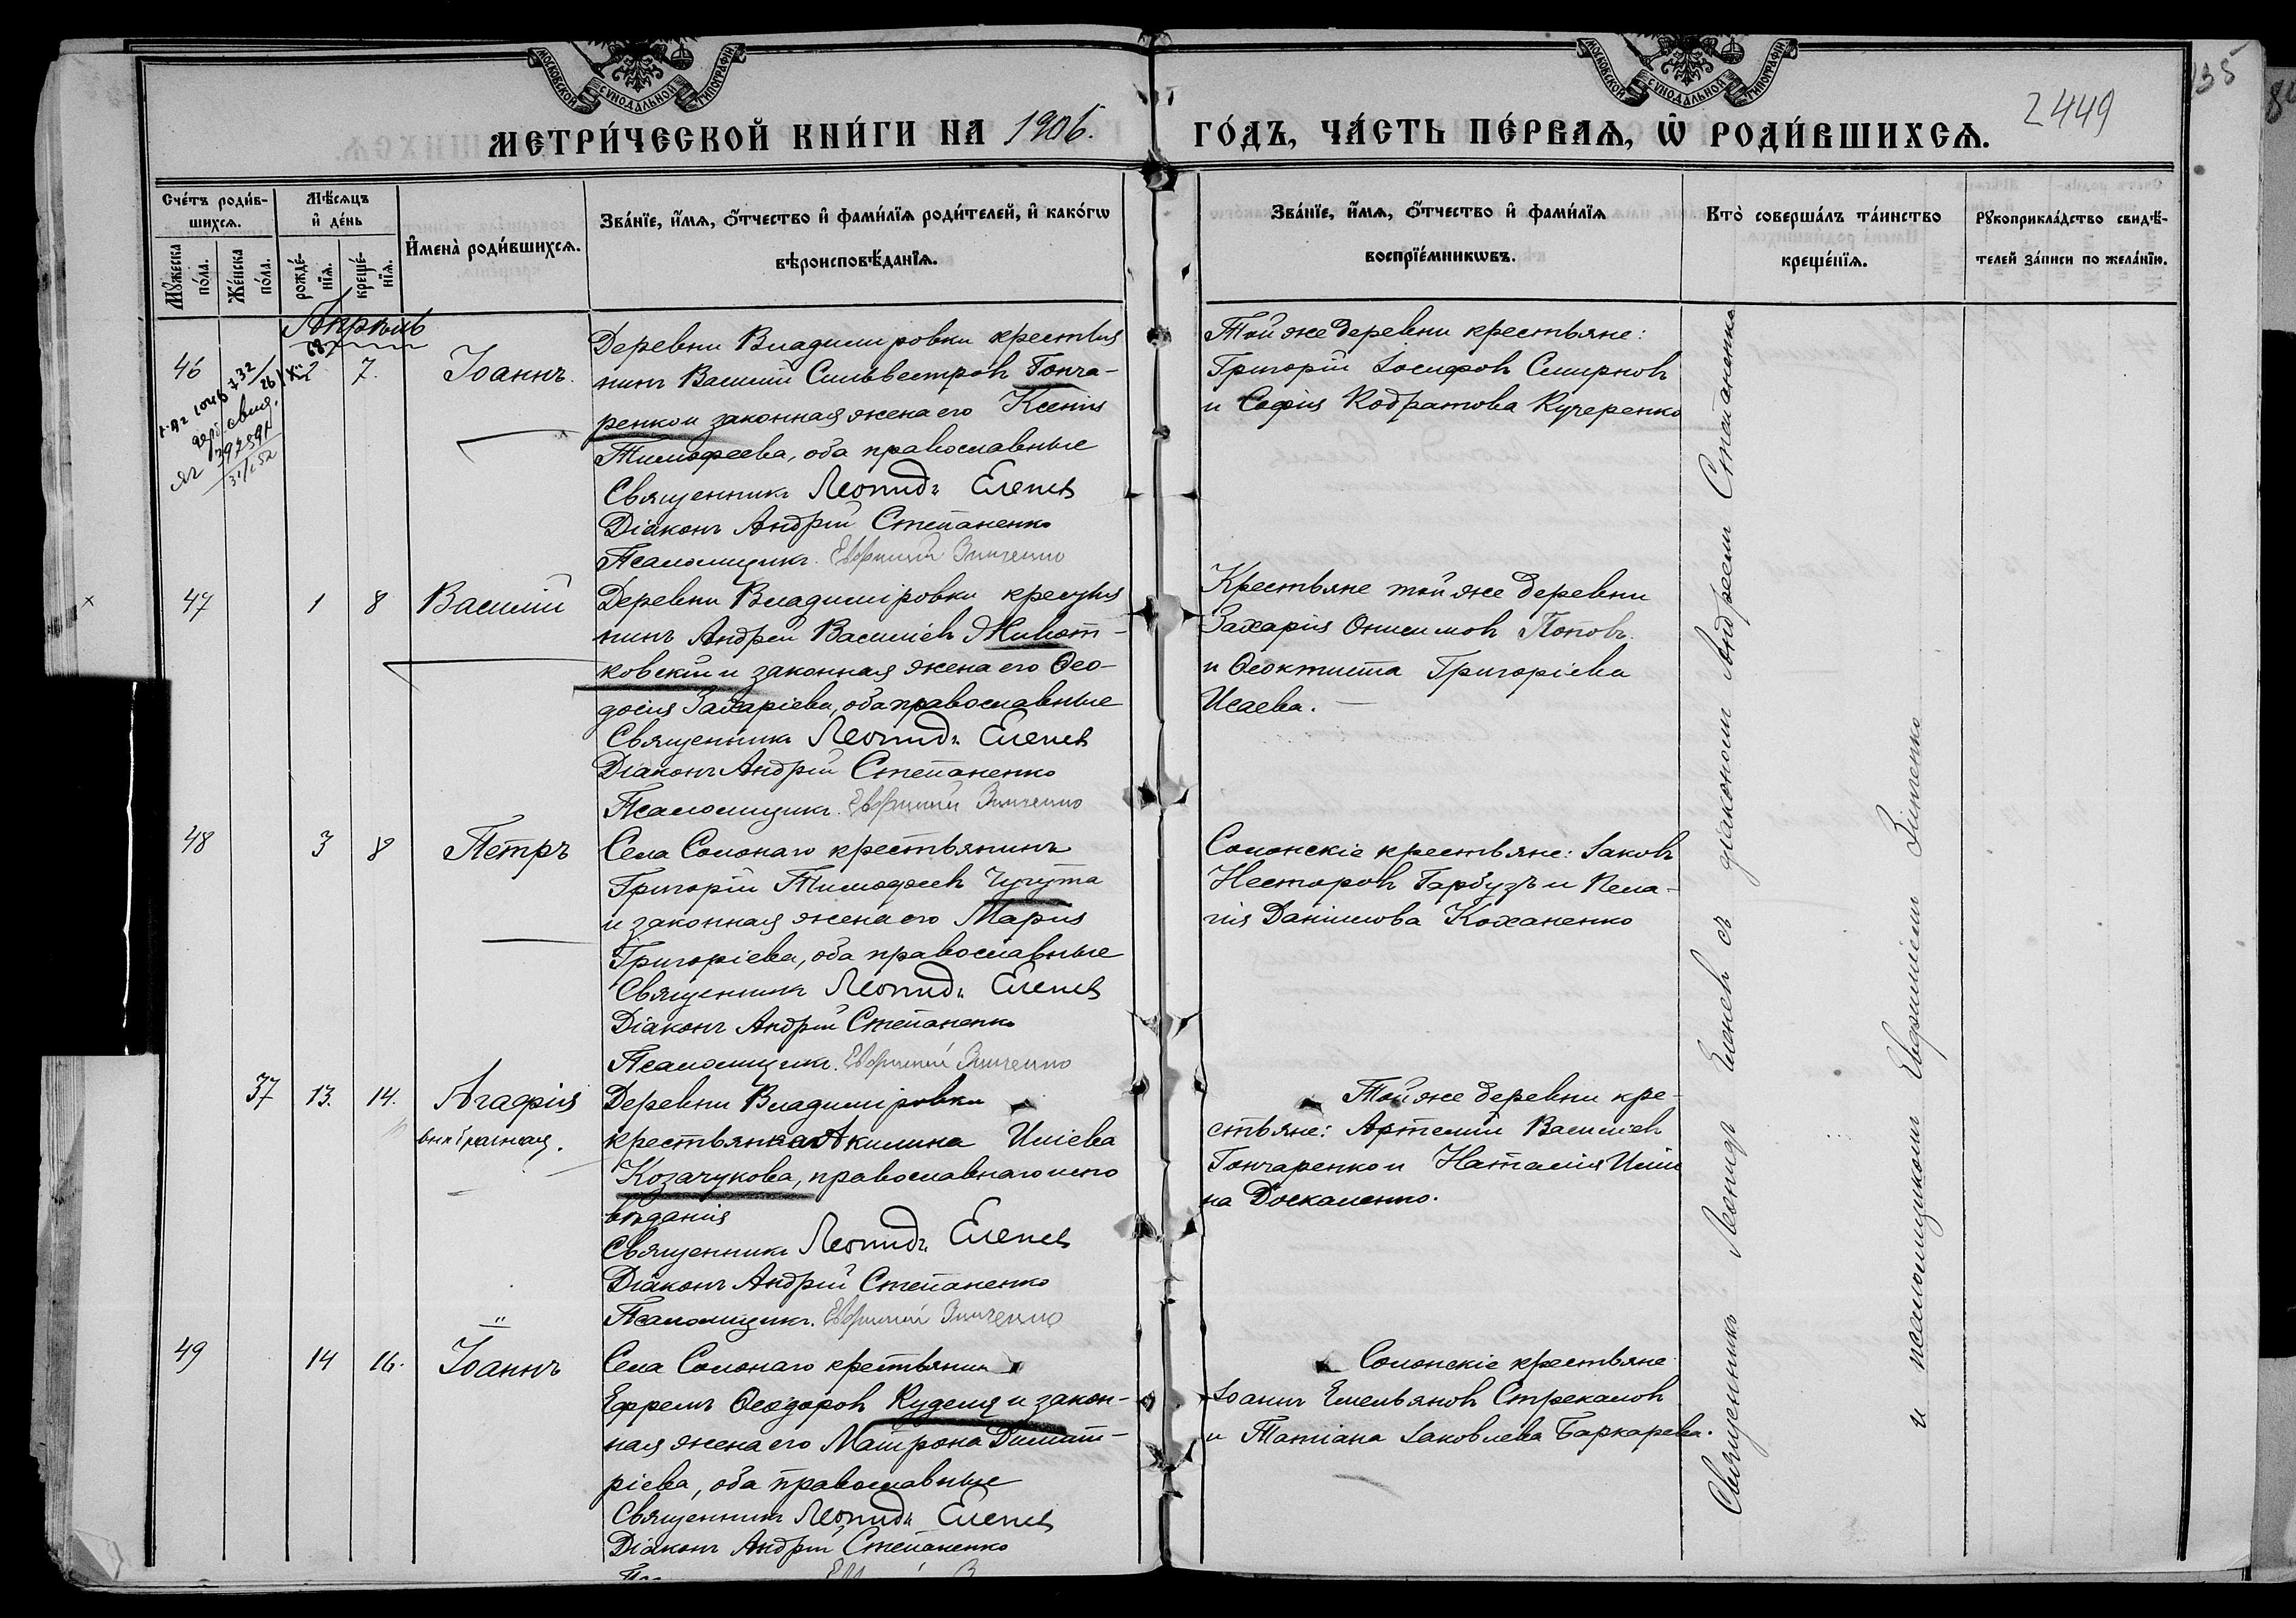 МОСКОВСКОЙ СѴНОДАЛЬНОЙ ТИПОГРАФІИ
МОСКОВСКОЙ СѴНОДАЛЬНОЙ ТИПОГРАФІИ
135
2449
МЕТРИ́ЧЕСКОЙ КНИ́ГИ НА 1906.
ГО́ДЪ, ЧА́СТЬ ПЕ́РВАѦ, Ѡ҆ РОДИ́ВШИХСѦ.
Сче́тъ роди́в-
шихся.
Мꙋ́жеска по́ла.
Же́нска по́ла.
Мѣ́сяцъ
и҆ де́нь
рожде́-нїя.
креще́-нїя.
И҆мена̀ роди́вшихсѧ.
Зва́нїе, и҆́мѧ, ѻ҆́тчество и҆ фами́лїѧ роди́телей, и҆ како́гѡ
вѣроисповѣ́данїѧ.
Зва́нїе, и҆́мѧ, ѻ҆́тчество и҆ фами́лїѧ
воспрїе́мникѡвъ.
Кто̀ соверша́лъ та́инство
креще́нїѧ.
Рꙋкоприкла́дство свидѣ́-
телей за́писи по жела́нїю.
Апрѣль
46
7.
Іоаннъ.
Деревни Владиміровки крестья
нинъ Василій Сильвестровъ Гонча-
ренко и законная жена его Ксенія
Тимофеева, оба православные
Священникъ Леонидъ Еленевъ
Діаконъ Андрей Степаненко
Псаломщикъ Евфимій Зинченко
Той же деревни крестьяне:
Григорій Іосифовъ Смирновъ
и Софія Кодратова Кучеренко
47
1
8
Василій
Деревни Владиміровки крестья
нинъ Андрей Васильевъ Живот-
ковскій и законная жена его Ѳео-
досія Захаріева, оба православные
Священникъ Леонидъ Еленевъ
Діаконъ Андрей Степаненко
Псаломщикъ Евфимій Зинченко
Крестьяне той же деревни
Захарія Онисимовъ Поповъ
и Ѳеоктиста Григоріева
Исаева.
48
3
8
Петръ
Села Солонаго крестьянинъ
Григорій Тимофеевъ Чугута
и законная жена его Марія
Григоріева, оба православные
Священникъ Леонидъ Еленевъ
Діаконъ Андрей Степаненко
Псаломщикъ Евфимій Зинченко
Солонскіе крестьяне: Іаковъ
Несторовъ Гарбузъ и Пела-
гія Даніилова Коханенко
37
13.
14.
Агафія
внебрачная.
Деревни Владиміровки
крестьянка Акилина Иліева
Козачукова, православнаго испо
вѣданія
Священникъ Леонидъ Еленевъ
Діаконъ Андрей Степаненко
Псаломщикъ Евфимій Зинченко
Той же деревни кре-
стьяне: Артемій Васильевъ
Гончаренко и Наталія Иліи
на Доскаленко.
49
14
16.
Іоаннъ
Села Солонаго крестьянинъ
Ефремъ Ѳеодоровъ Куделя и закон-
ная жена его Матрона Димит-
ріева, оба православные
Священникъ Леонидъ Еленевъ
Діаконъ Андрей Степаненко
Солонскіе крестьяне
Іоаннъ Емельяновъ Стрекаловъ
и Татіана Іаковлева Баркарева.
Священникъ Леонидъ Еленевъ съ діакономъ Андреемъ Степаненко
и псаломщикомъ Евфиміемъ Зинченко